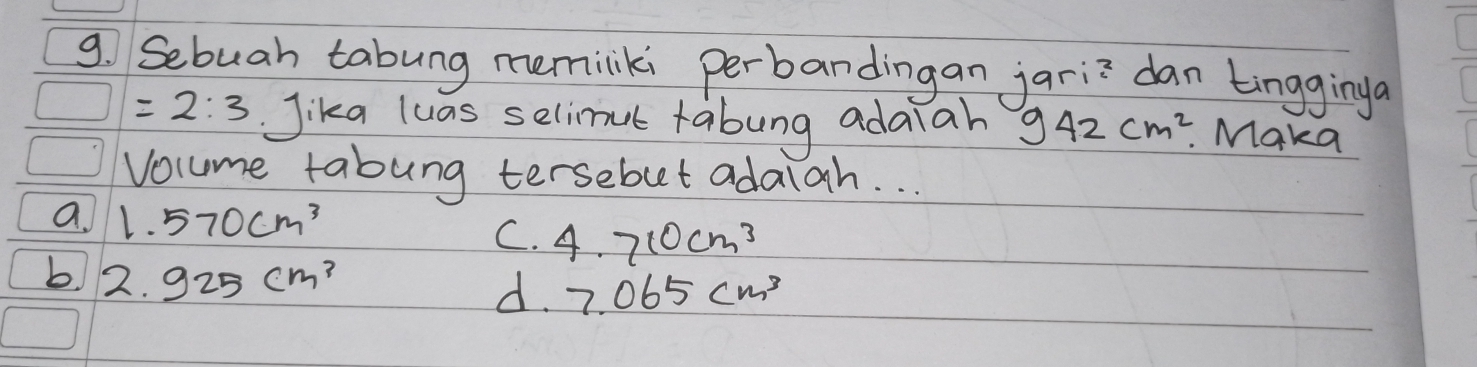 9. Sebuah tabung memiliki perbandingan jari² dan tingginya
= 2:3. Jika luas selimut tabung adalah 942 cm². Maka
Volume tabung tersebut adalah...
a. 1.570 cm³ c. 4.710 cm³
b. 2.925 cm³ d. 7.065 cm³